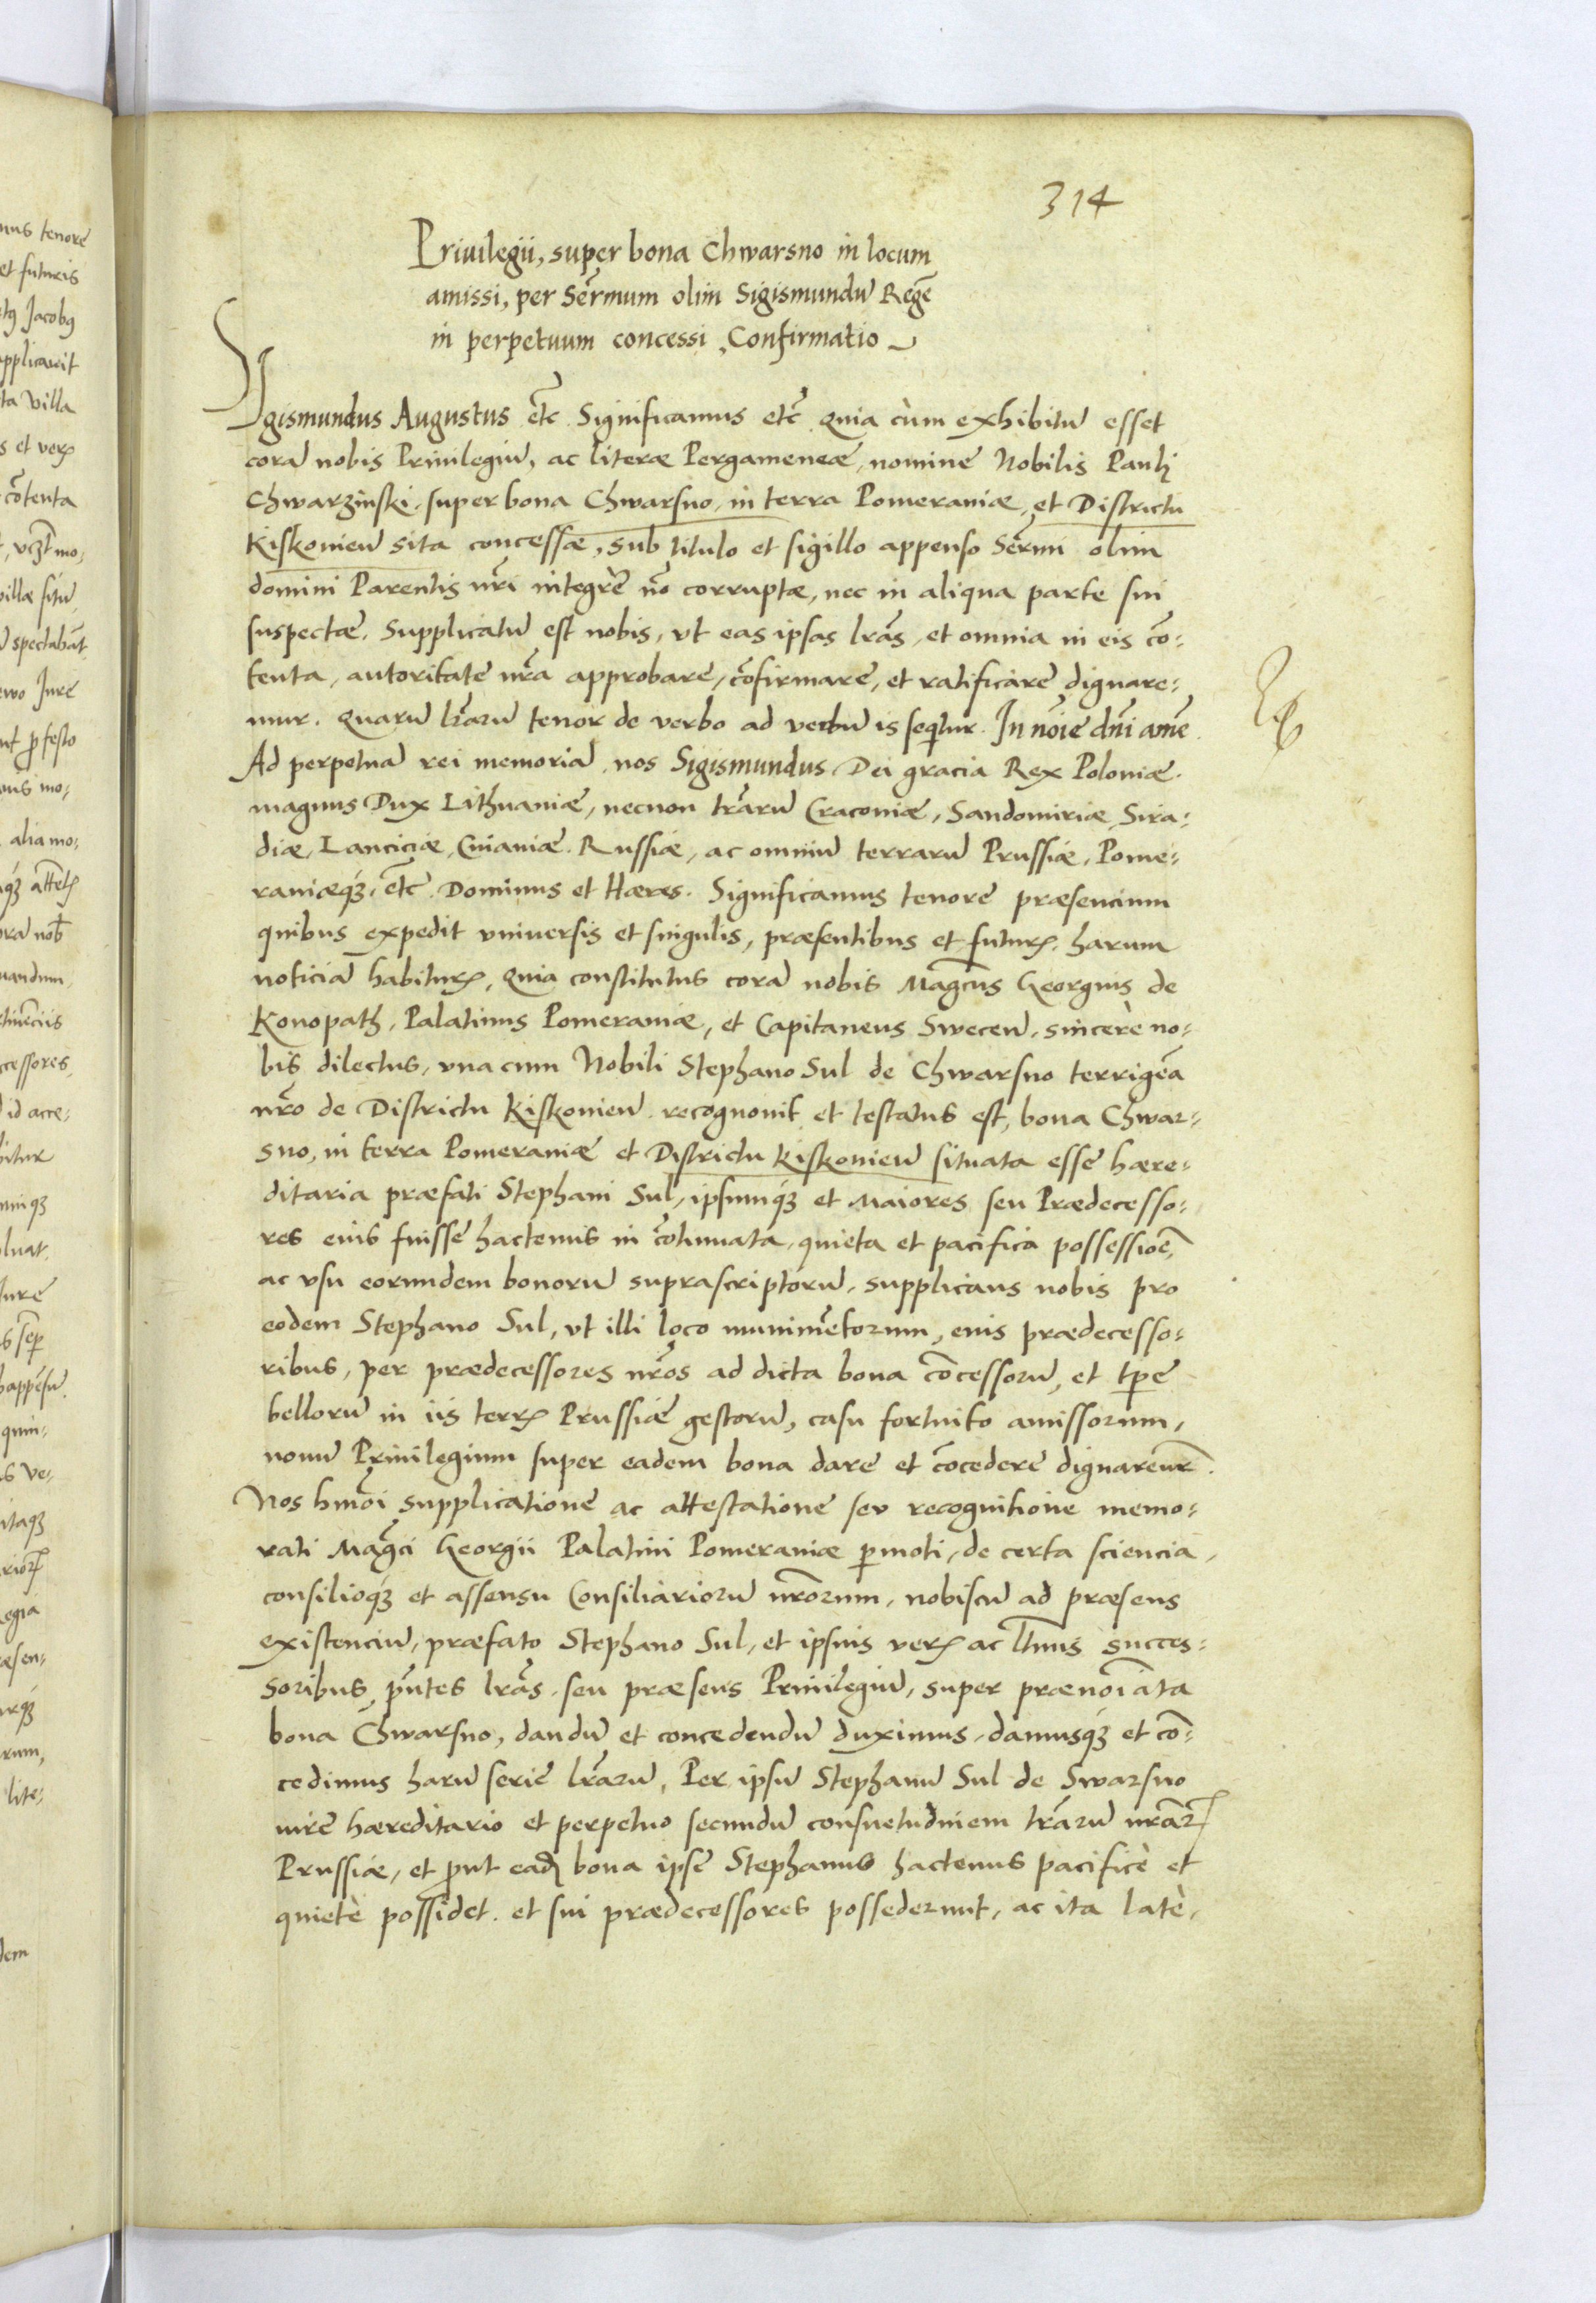 314
Priuilegii, super bona Chwarsno in locum
amissi, per Serm̃um olim Sigismundũ Regẽ
in perpetuum concessi, Confirmatio
Sigismundus Augustus etc̃ Significamus etc̃ Quia cùm exhibitũ esset
corã nobis Priuilegiũ, ac literæ Pergameneæ, nomine Nobilis Pauli
Chwarzinski, super bona Chwarsno, in terra Pomeraniæ, et Districtu
Kiskonieñ sita concessæ, sub titulo et sigillo appenso Serm̃i olim
domini Parentis nr̃i integrè nõ corruptæ, nec in aliqua parte sui
suspectæ. Supplicatũ est nobis, vt eas ipsas lr̃as, et omnia in eis cõ-
tenta, autoritate nr̃a approbare, cõfirmare, et ratificare dignare-
mur. Quarũ lr̃arũ tenor de verbo ad verbũ is seqitur. In noĩe dñi amẽ.
Ad perpetuã rei memoriã. nos Sigismundus Dei gracia Rex Poloniæ.
magnus Dux Lithuaniæ, necnon tr̃arũ Cracouiæ, Sandomiriæ, Sira-
diæ, Lanciciæ, Cuiauiæ. Russiæ, ac omniũ terrarũ Prussiæ, Pome-
raniæq́ꝫ, etc̃ Dominus et Hæres. Significamus tenore præsencium
quibus expedit vniuersis et singulis, præsentibus et futurꝭ. harum
noticiã habiturꝭ, Quia constitutus corã nobis Mag̃cus Georgius de
Konopath, Palatinus Pomeraniæ, et Capitaneus Sweceñ, sincerè no-
bis dilectus, vna cum Nobili Stephano Sul de Chwarsno terrigẽa
nr̃o de Districtu Kiskonieñ recognouit et testatus est, bona Chwar-
sno, in terra Pomeraniæ et Districtu Kiskonieñ situata esse hære-
ditaria præfati Stephani Sul, ipsumq́ꝫ et Maiores seu Prædecesso-
res eius fuisse hactenus in cõtinuata, quieta et pacifica possessiõe,
ac vsu eorundem bonorũ suprascriptorũ, supplicans nobis pro
eodem Stephano Sul, vt illi loco munimẽtorum, eius prædecesso-
ribus, per prædecessores nr̃os ad dicta bona cõcessorũ, et tp̃e
bellorũ in iis terrꝭ Prussiæ gestorũ, casu fortuito amissorum,
nouũ Priuilegium super eadem bona dare et cõcedere dignaremr̃.
Nos hm̃oi supplicatione ac attestatione seu recognitione memo-
rati Mag̃ci Georgii Palatini Pomeraniæ ꝑmoti, de certa sciencia,
consilioq́ꝫ et assensu Consiliariorũ nr̃orum, nobiscũ ad præsens
existenciũ, præfato Stephano Sul, et ipsius verꝭ ac lt̃imis succes-
soribus, pñtes lr̃as, seu præsens Priuilegiũ, super prænoĩata
bona Chwarsno, dandũ et concedendũ duximus, damusq́ꝫ et cõ-
cedimus harũ serie lr̃arũ, Per ipsũ Stephanũ Sul de Swarsno
iure hæreditario et perpetuo secundũ consuetudinem tr̃arũ nr̃arꝝ
Prussiæ, et ꝓut eadẽ bona ipse Stephanus hactenus pacificè et
quietè possidet. et sui prædecessores possederunt, ac ita latè,